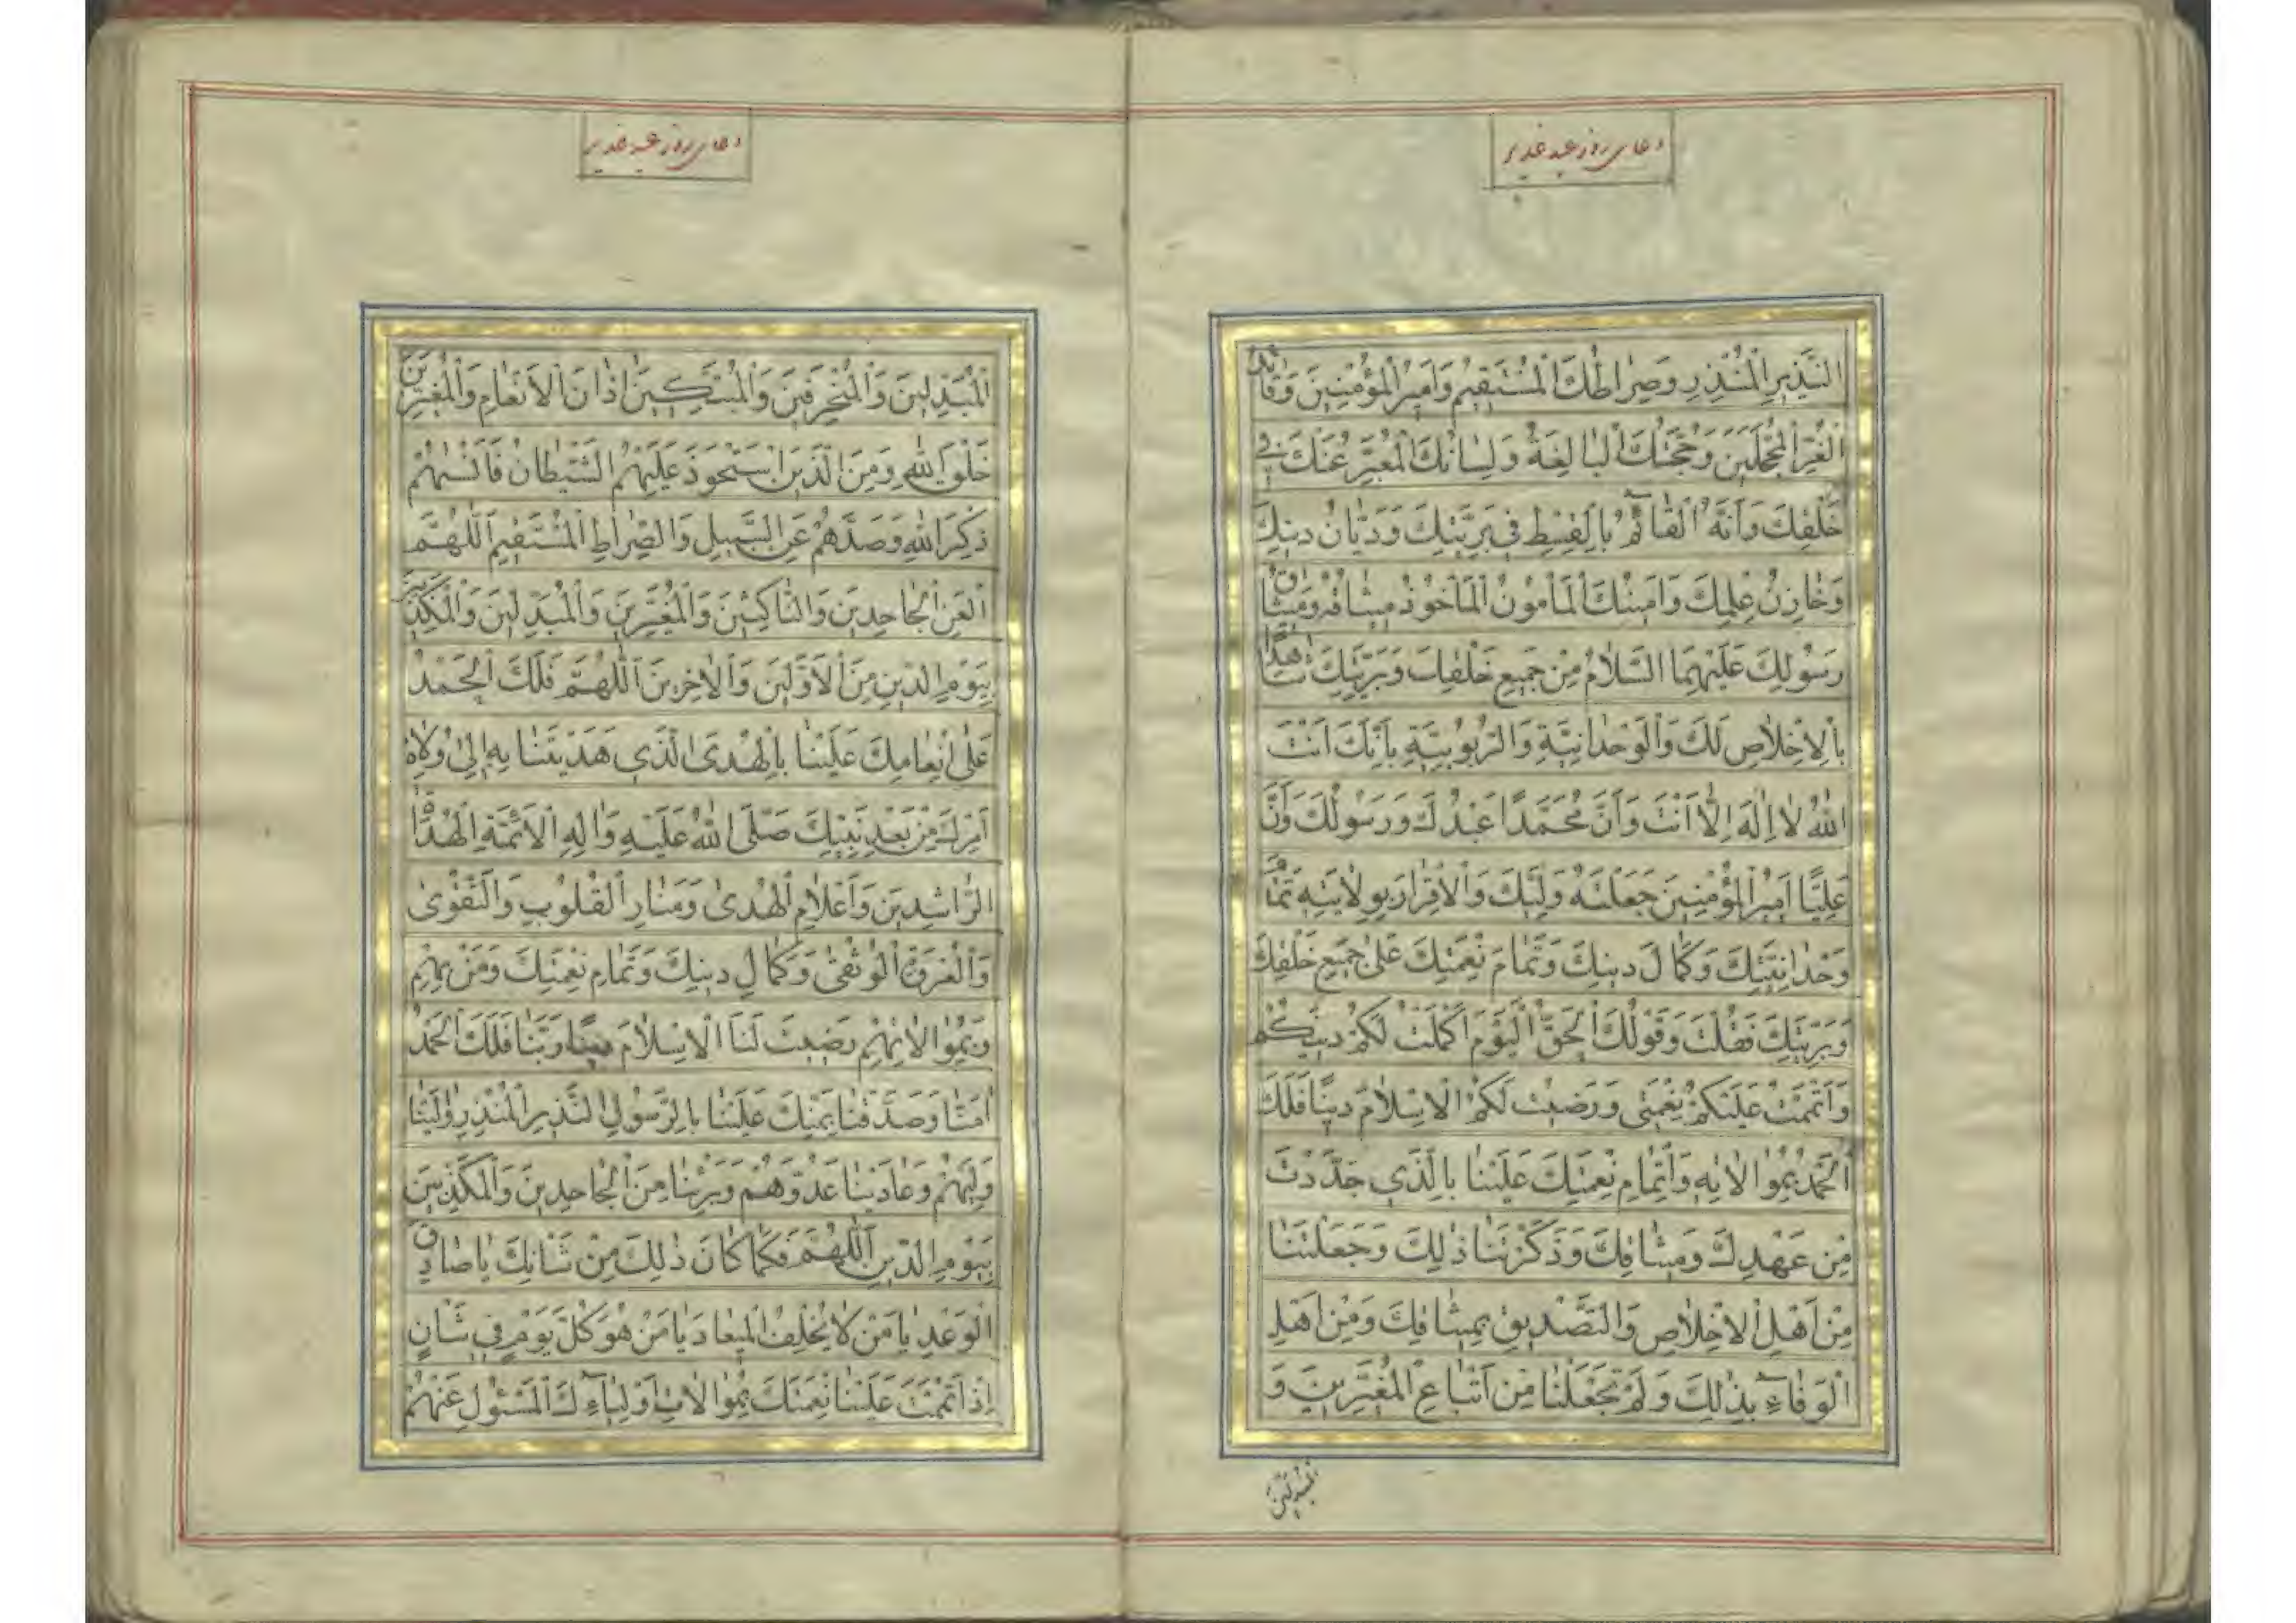 دعای روز عید غدیر
النَّذِيرِ الْمُنْذِرِ وَصِرٰاطُكَ الْمُسْتَقِيمُ وَاَمِيرُ الْمُؤْمِنِينَ وَقٰائِدُ
الْغُرِّ الْمُحَجَّلِينَ وَحُجَّتُكَ الْبٰالِغَةُ وَلِسٰانُكَ الْمُعَبِّرُ عَنْكَ فِي
خَلْقِكَ وَاَنَّهُ الْقٰائِمُ بِالْقِسْطِ فِي بَرِيَّتِكَ وَدَيّٰانُ دِينِكَ
وَخٰازِنُ عِلْمِكَ وَاَمِينُكَ الْمَأْمُونُ الْمَأْخُوذُ مِيثٰاقُهُ وَمِيثٰاقُ
رَسُولِكَ عَلَيْهِمَا السَّلٰامُ مِنْ جَمِيعِ خَلْقِكَ وَبَرِيَّتِكَ شٰاهِدًا
بِالْاِخْلٰاصِ لَكَ وَالْوَحْدٰانِيَّةِ وَالرُّبُوبِيَّةِ بِاَنَّكَ اَنْتَ
اللّٰهُ لٰا اِلٰهَ اِلّٰا اَنْتَ وَاَنَّ مُحَمَّدًا عَبْدُكَ وَرَسُولُكَ وَاَنَّ
عَلِيًّا اَمِيرُ الْمُؤْمِنِينَ جَعَلْتَهُ وَلِيَّكَ وَالْاِقْرٰارَ بِوِلٰايَتِهِ تَمٰامَ
وَحْدٰانِيَّتِكَ وَكَمٰالَ دِينِكَ وَتَمٰامَ نِعْمَتِكَ عَلىٰ جَمِيعِ خَلْقِكَ
وَبَرِيَّتِكَ فَقُلْتَ وَقَوْلُكَ الْحَقُّ الْيَوْمَ اَكْمَلْتُ لَكُمْ دِينَكُمْ
وَاَتْمَمْتُ عَلَيْكُمْ نِعْمَتِي وَرَضِيتُ لَكُمُ الْاِسْلٰامَ دِينًا فَلَكَ
الْحَمْدُ بِمُوٰالٰاتِهِ وَاِتْمٰامِ نِعْمَتِكَ عَلَيْنٰا بِالَّذِي جَدَّدْتَ
مِنْ عَهْدِكَ وَمِيثٰاقِكَ وَذَكَّرْتَنٰا ذٰلِكَ وَجَعَلْتَنٰا
مِنْ اَهْلِ الْاِخْلٰاصِ وَالتَّصْدِيقِ بِمِيثٰاقِكَ وَمِنْ اَهْلِ
الْوَفٰاءِ بِذٰلِكَ وَلَمْ تَجْعَلْنٰا مِنْ اَتْبٰاعِ الْمُغَيِّرِينَ وَ
دعای روز عید غدیر
الْمُبَدِّلِينَ وَالْمُنْحَرِفِينَ وَالْمُبَتِّكِينَ اٰذٰانَ الْاَنْعٰامِ وَالْمُغَيِّرِينَ
خَلْقَ اللّٰهِ وَمِنَ الَّذِينَ اسْتَحْوَذَ عَلَيْهِمُ الشَّيْطٰانُ فَاَنْسٰهُمْ
ذِكْرَ اللّٰهِ وَصَدَّهُمْ عَنِ السَّبِيلِ وَالصِّرٰاطِ الْمُسْتَقِيمِ اَللّٰهُمَّ
الْعَنِ الْجٰاحِدِينَ وَالنّٰاكِثِينَ وَالْمُغَيِّرِينَ وَالْمُبَدِّلِينَ وَالْمُكَذِّبِينَ
بِيَوْمِ الدِّينِ مِنَ الْاَوَّلِينَ وَالْاٰخِرِينَ اَللّٰهُمَّ فَلَكَ الْحَمْدُ
عَلىٰ اِنْعٰامِكَ عَلَيْنٰا بِالْهُدَى الَّذِي هَدَيْتَنٰا بِهِ اِلىٰ وُلٰاةِ
اَمْرِكَ مِنْ بَعْدِ نَبِيِّكَ صَلَّى اللّٰهُ عَلَيْهِ وَاٰلِهِ الْاَئِمَّةِ الْهُدٰاةِ
الرّٰاشِدِينَ وَاَعْلٰامِ الْهُدىٰ وَمَنٰارِ الْقُلُوبِ وَالتَّقْوىٰ
وَالْعُرْوَةِ الْوُثْقىٰ وَكَمٰالِ دِينِكَ وَتَمٰامِ نِعْمَتِكَ وَمَنْ بِهِمْ
وَبِمُوٰالٰاتِهِمْ رَضِيتَ لَنَا الْاِسْلٰامَ دِينًا رَبَّنٰا فَلَكَ الْحَمْدُ
اٰمَنّٰا وَصَدَّقْنٰا بِمَنِّكَ عَلَيْنٰا بِالرَّسُولِ النَّذِيرِ الْمُنْذِرِ وٰالَيْنٰا
وَلِيَّهُمْ وَعٰادَيْنٰا عَدُوَّهُمْ وَبَرِئْنٰا مِنَ الْجٰاحِدِينَ وَالْمُكَذِّبِينَ
بِيَوْمِ الدِّينِ اَللّٰهُمَّ فَكَمٰا كٰانَ ذٰلِكَ مِنْ شَأْنِكَ يٰا صٰادِقَ
الْوَعْدِ يٰا مَنْ لٰا يُخْلِفُ الْمِيعٰادَ يٰا مَنْ هُوَ كُلَّ يَوْمٍ فِي شَأْنٍ
اِذْ اَتْمَمْتَ عَلَيْنٰا نِعْمَتَكَ بِمُوٰالٰاتِ اَوْلِيٰاءِكَ الْمَسْئُولِ عَنْهُمْ